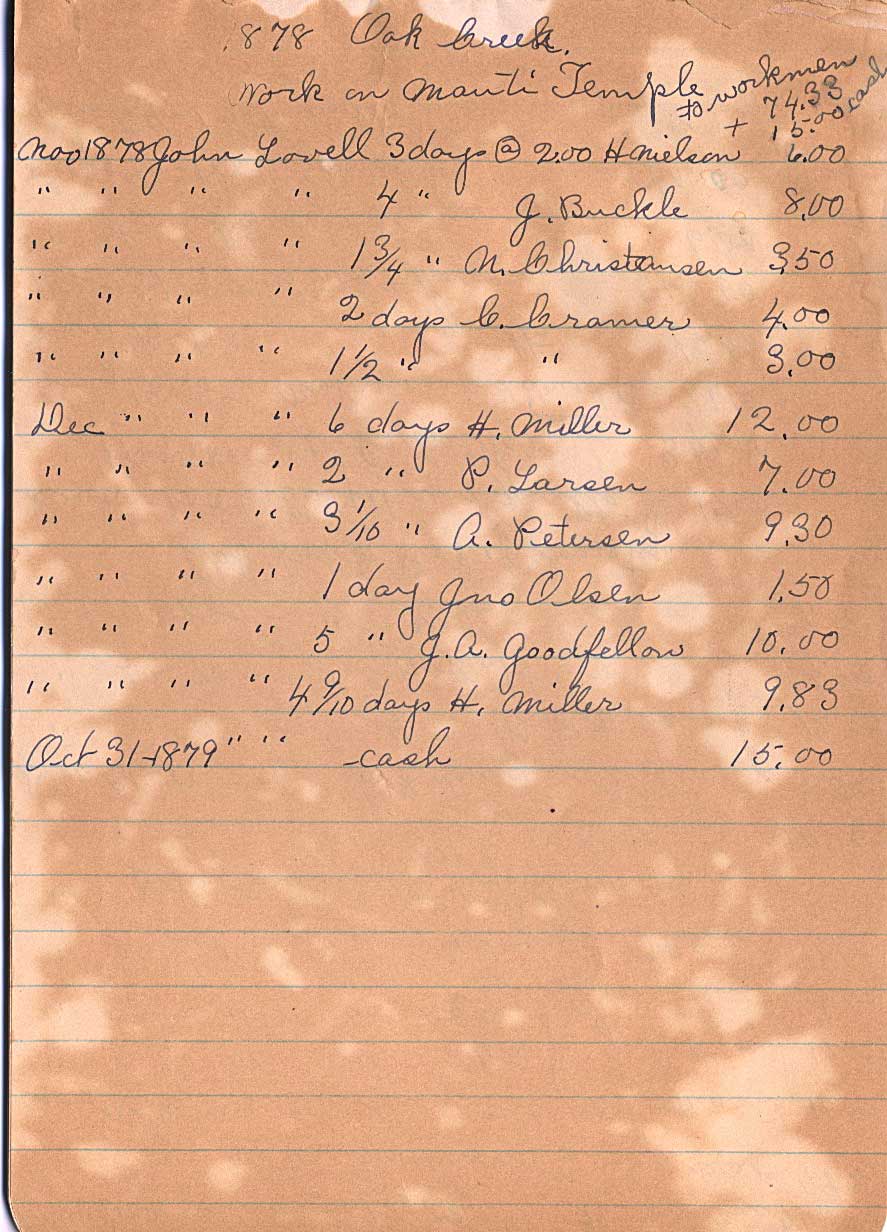 1878 Oak Creek.
Work on Manti Temple to workmen
74.33
+ 15.00 cash
Nov 1878 John Lovell 3 days @ 2.00 H Nielson 6.00
" " " " 4 " J. Buckle 8.00
" " " " 1 3/4 " N. Christansen 3.50
" " " " 2 days C. Cramer 4.00
" " " " 1 1/2 " " 3.00
Dec " " " 6 days H. Miller 12.00
" " " " 2 " P. Larsen 7.00
" " " " 3 1/10 " A. Petersen 9.30
" " " " 1 day Jno Olsen 1.50
" " " " 5 " J.A. Goodfellow 10.00
" " " " 4 9/10 days H. Miller 9.83
Oct 31-1879 " " -cash 15.00